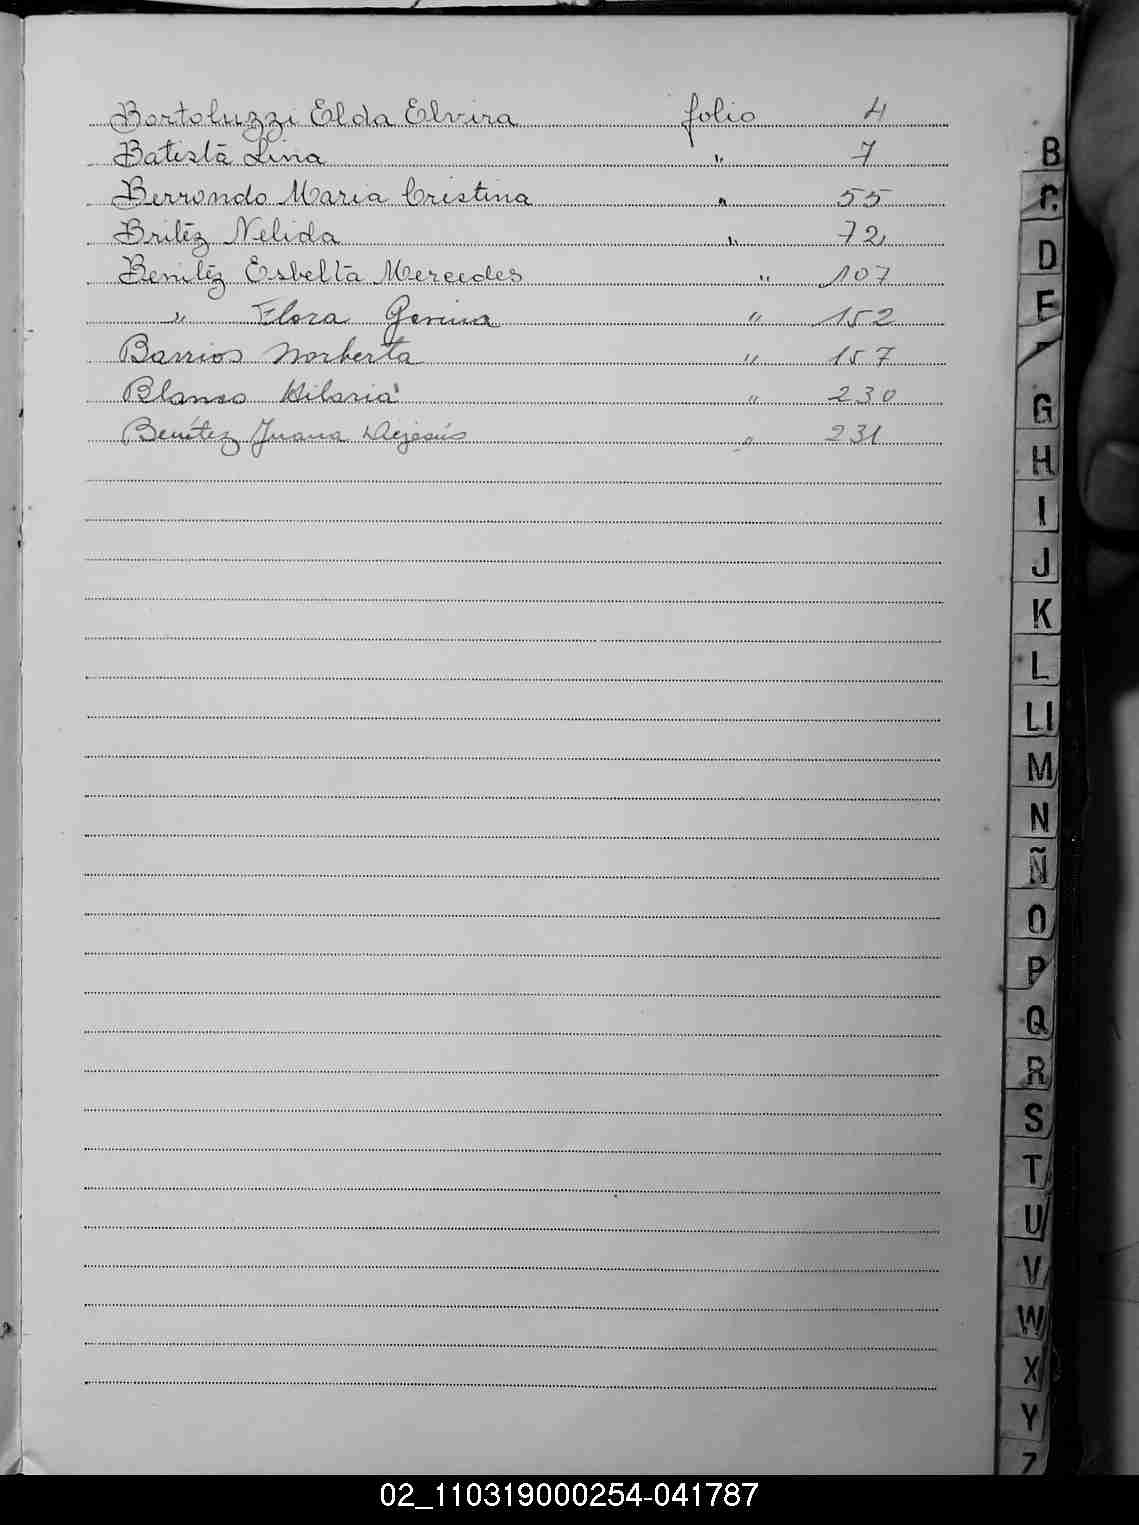 Bortoluzzi Elda Elvira folio 4
Batista Lina " 7
Berrondo Maria Cristina " 55
Britez Nelida " 72
Benitez Esbelta Mercedes " 107
" Flora Gerina " 152
Barrios Norberta " 157
Blanco Hilaria " 230
Benítez Juana Dejesús " 231
B
C
D
E
F
G
H
I
J
K
L
Ll
M
N
Ñ
O
P
Q
R
S
T
U
V
W
X
Y
Z
02_110319000254-041787